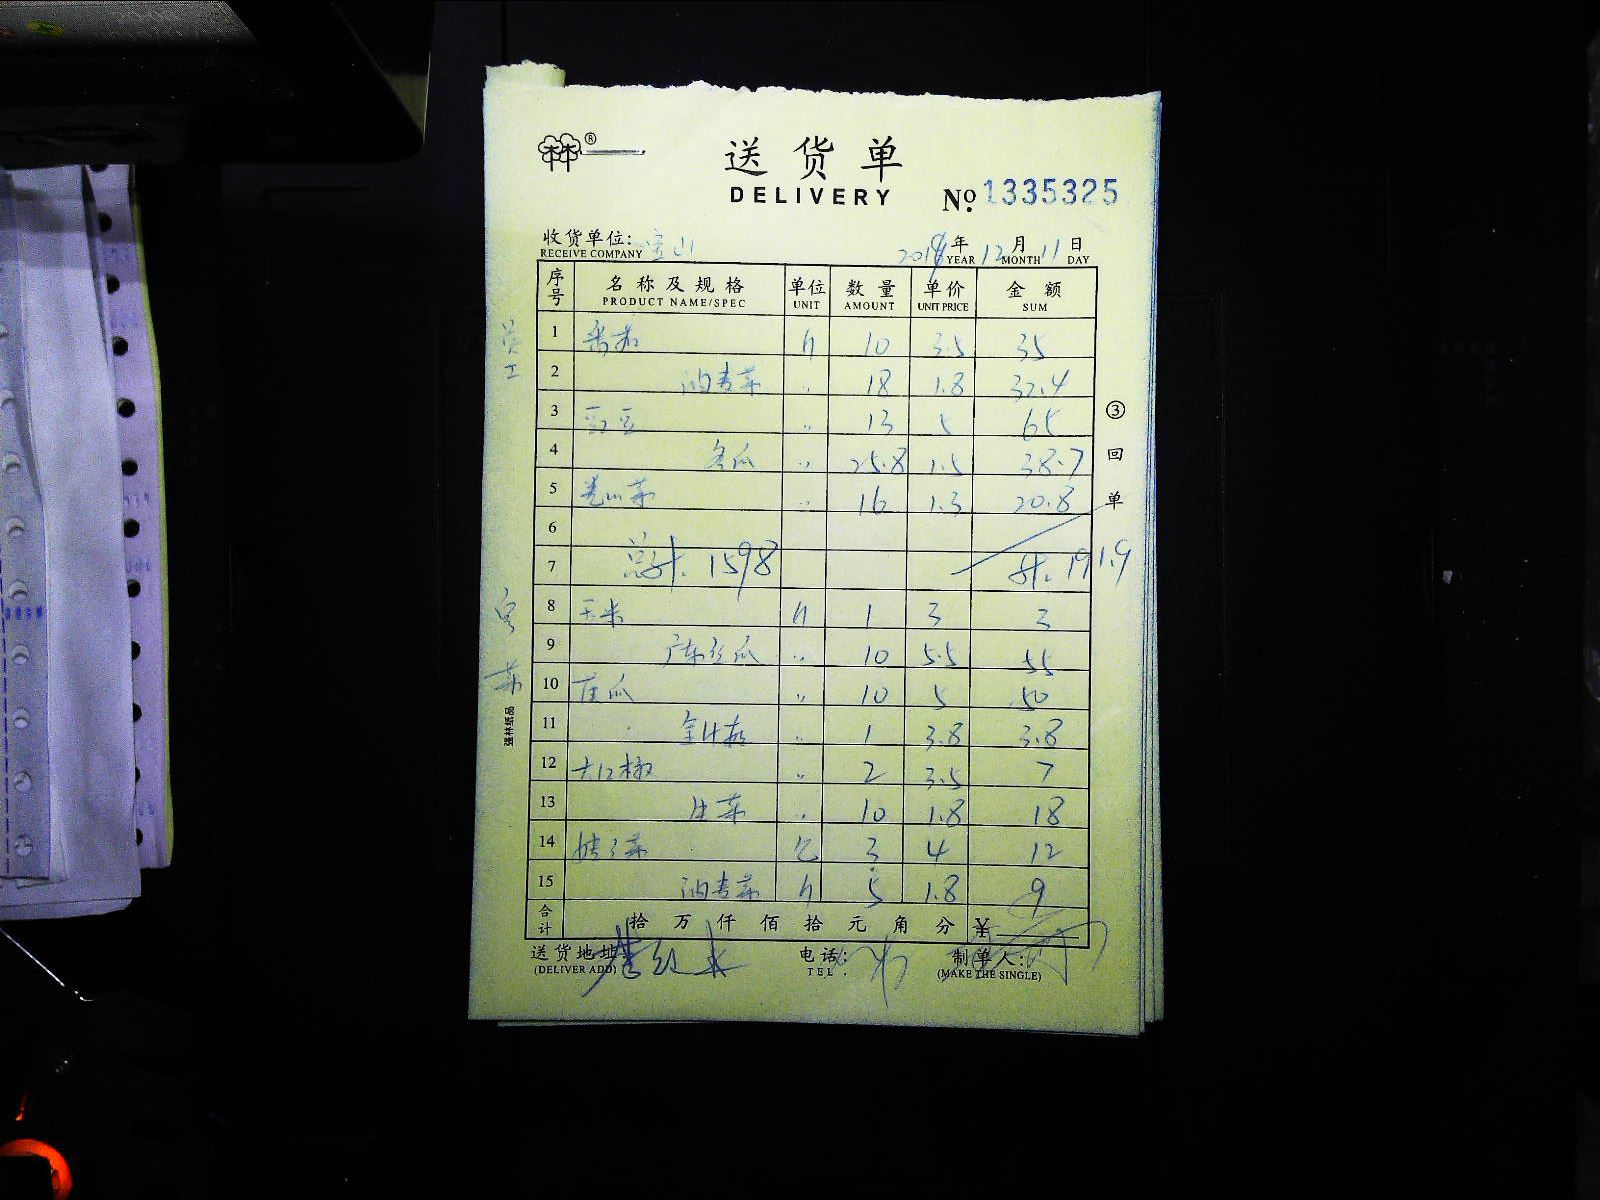 ®
送货单
DELIVERY
No. 1335325
收货单位: 宝山 2018年12月11日
RECEIVE COMPANY YEAR MONTH DAY
序号 名称及规格 单位 数量 单价 金额
PRODUCT NAME/SPEC UNIT AMOUNT UNIT PRICE SUM
1 番茄 斤 10 3.5 35
2 油麦菜 〃 18 1.8 32.4
3 豇豆 〃 13 5 65
4 冬瓜 〃 25.8 1.5 38.7
5 卷心菜 〃 16 1.3 20.8
6
7 总计. 1598 计. 191.9
8 玉米 斤 1 3 3
9 广东丝瓜 〃 10 5.5 55
10 〃 10 5 50
11 〃 1 3.8 3.8
12 大红椒 〃 2 3.5 7
13 生菜 〃 10 1.8 18
14 3 4 12
15 油麦菜 斤 5 1.8 9
合计 拾万仟佰拾元角分 ¥
送货地址 电话: 制单人:
(DELIVER ADD) TEL. (MAKE THE SINGLE)
③回单
员工
客菜
强林纸品